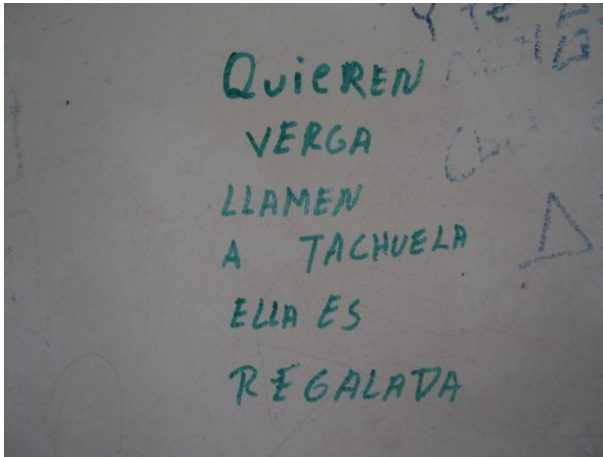 Y te
QuieREN
VERGA
LLAMEN
A TACHUELA
ELLA ES
REGALADA